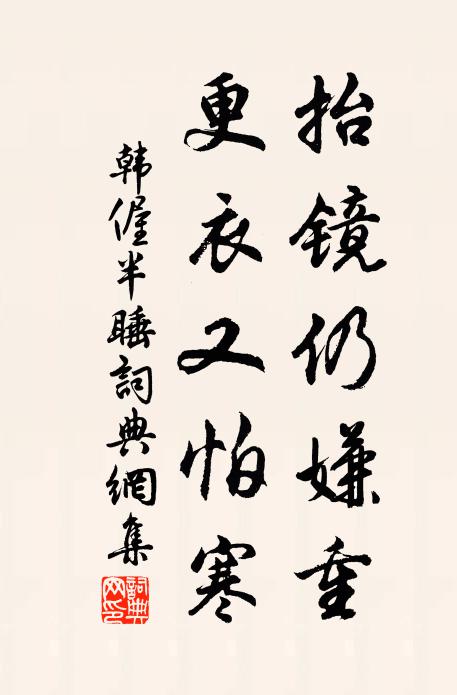 抬镜仍嫌重
更衣又怕寒
韩偓半睡詞典網集
詞典网印